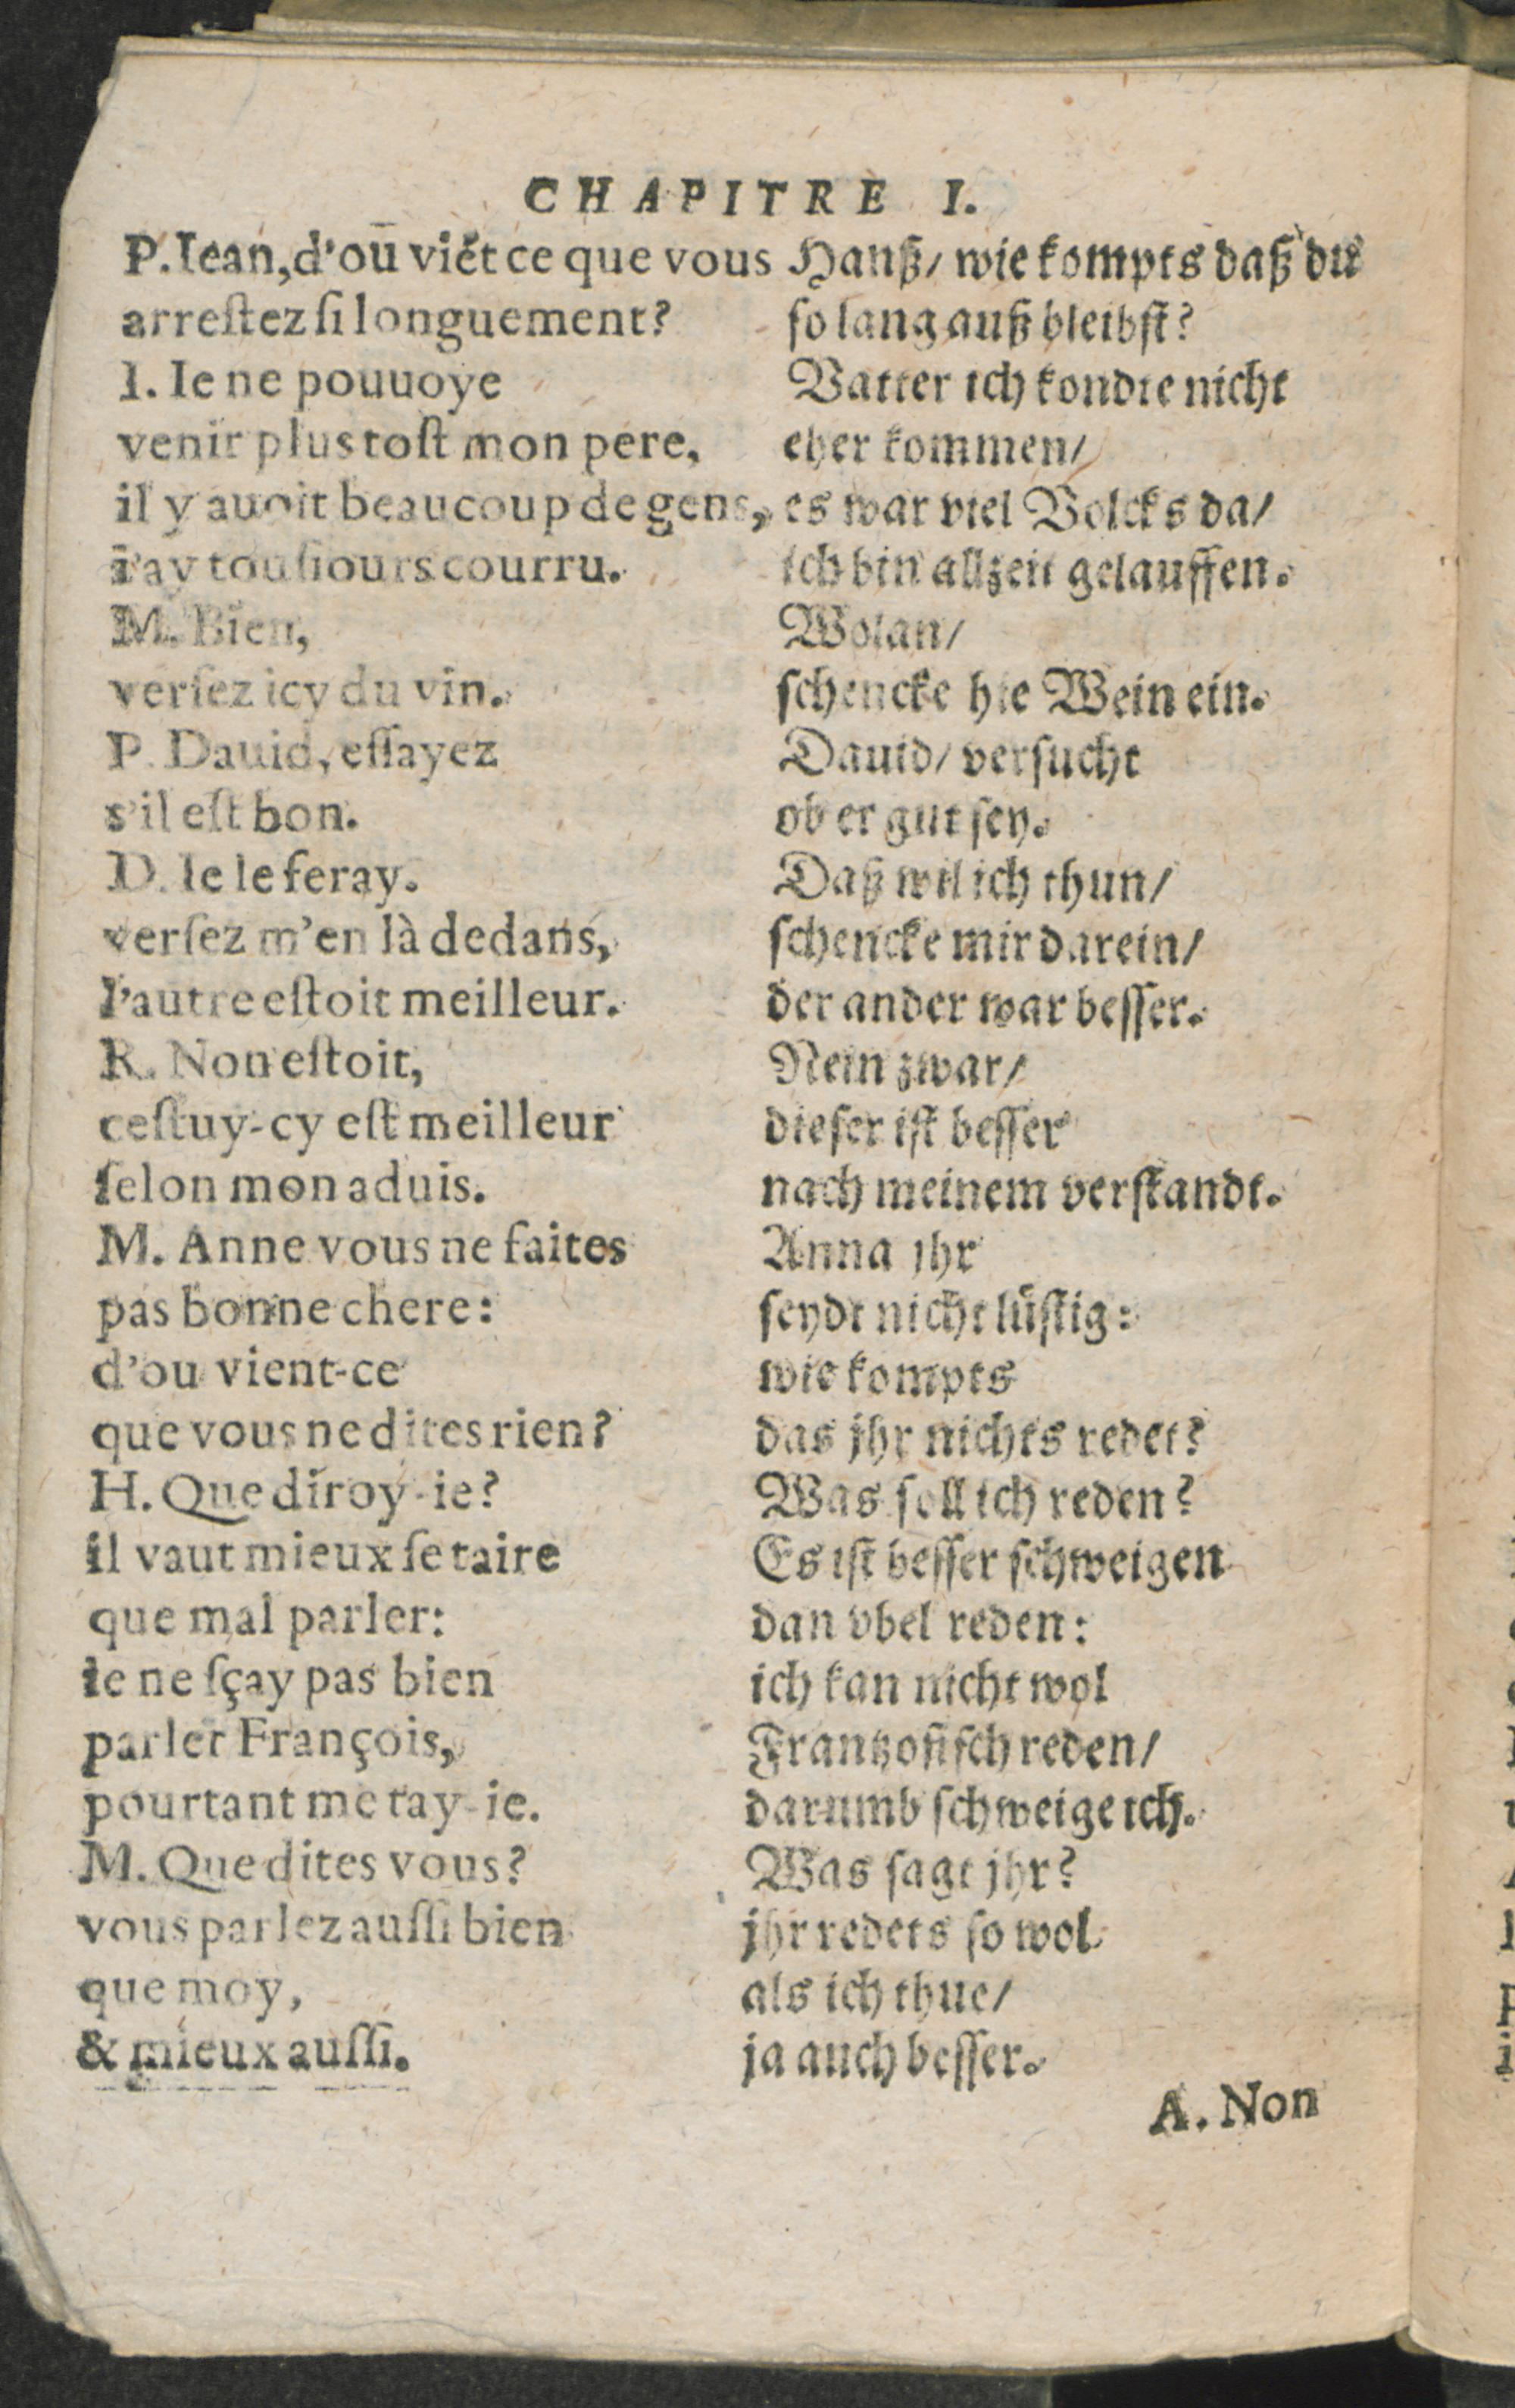 CHAPITRE I.
P. Iean, d'oū viẽt ce que vous
arreſtez ſi longuement?
I. Ie ne pouuoye
venir plus toſt mon pere,
il y auoit beaucoup de gens,
i'ay touſiours courru.
M. Bien,
verſez icy du vin.
P. Dauid, eſſayez
s'il eſt bon.
D. Ie le feray.
verſez m'en là dedans,
l'autre eſtoit meilleur.
R. Non eſtoit,
ceſtuy-cy eſt meilleur
ſelon mon aduis.
M. Anne vous ne faites
pas bonne chere:
d'ou vient-ce
que vous ne dites rien?
H. Que diroy-ie?
il vaut mieux ſe taire
que mal parler:
ie ne ſçay pas bien
parler François,
pourtant me tay-ie.
M. Que dites vous?
vous parlez auſſi bien
que moy,
& mieux auſſi.
Hanß/ wie kompts daß du
ſo lang auß bleibſt?
Vatter ich kondte nicht
eher kommen/
es war viel Volcks da/
ich bin allzeit gelauffen.
Wolan/
ſchencke hie Wein ein.
Dauid/ verſucht
ob er gut ſey.
Daß wil ich thun/
ſchencke mir darein/
der ander war beſſer.
Nein zwar/
dieſer iſt beſſer
nach meinem verſtandt.
Anna jhr
ſeydt nicht luſtig:
wie kompts
das jhr nichts redet?
Was ſoll ich reden?
Es iſt beſſer ſchweigen
dan vbel reden:
ich kan nicht wol
Frantzoſiſch reden/
darumb ſchweige ich.
Was ſagt jhr?
jhr redets ſo wol
als ich thue/
ja auch beſſer.
A. Non